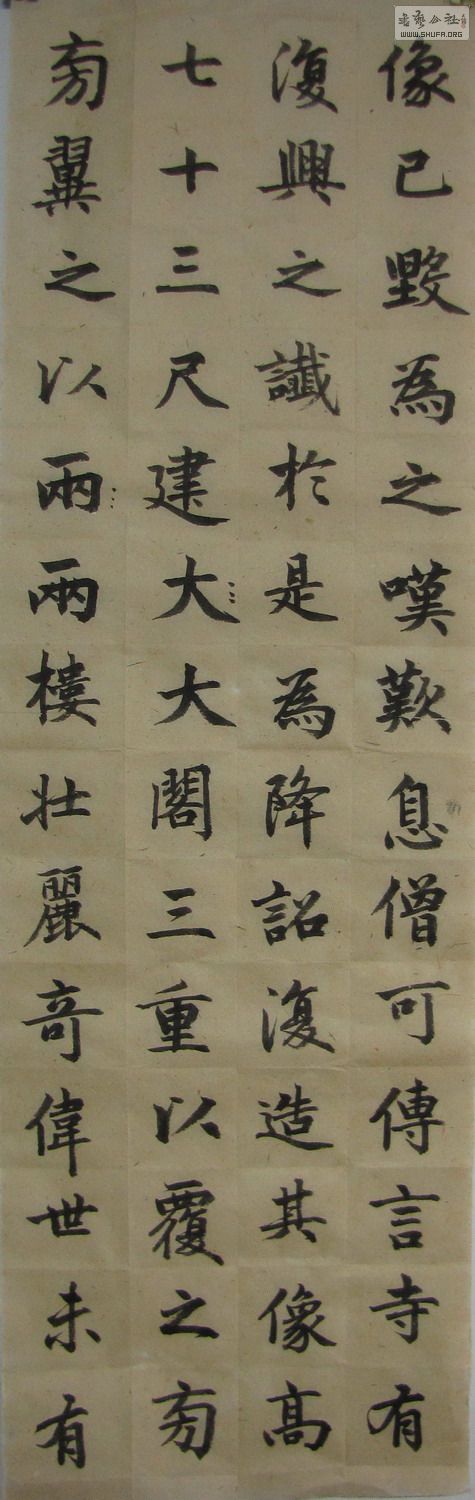 像已毀為之嘆歎息僧可傳言寺有
復興之讖於是為降詔復造其像高
七十三尺建大大閣三重以覆之旁
旁翼之以兩兩樓壯麗奇偉世未有
書藝公社
WWW.SHUFA.ORG